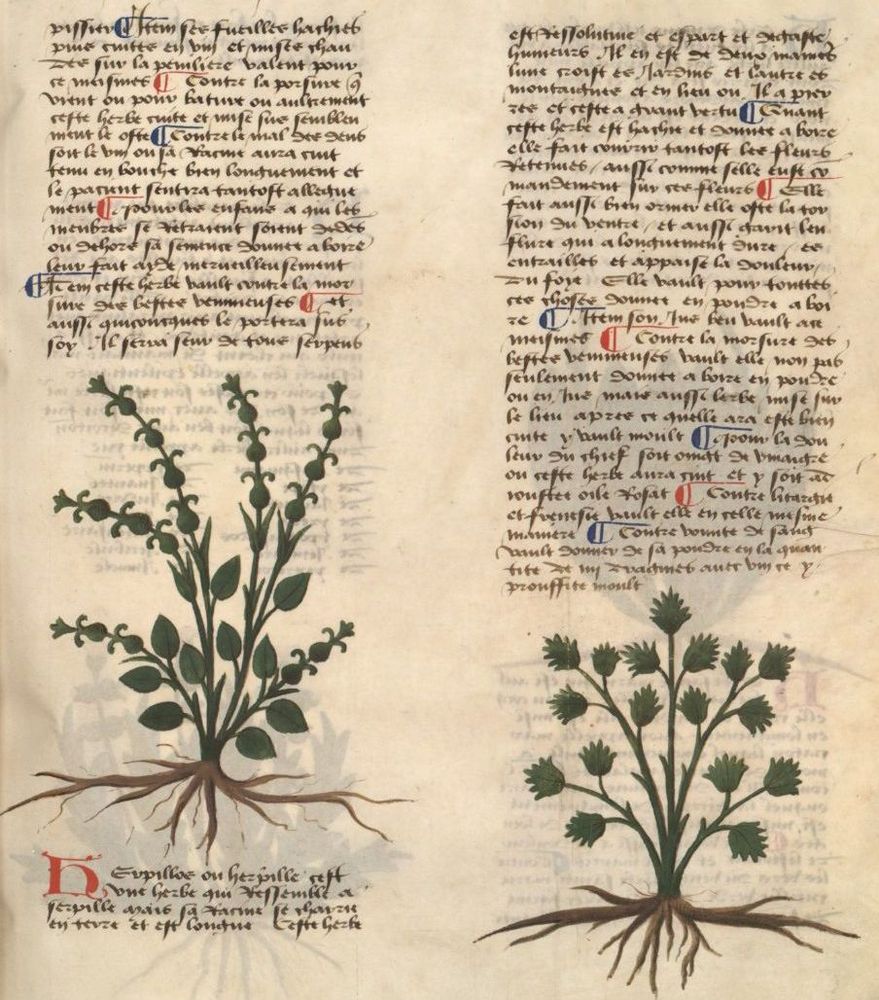 pissier ¶ Item ses fueilles hachies
puis cuittes en vin et mises chau
des sur la peniliere valent pour
ce meismes ¶ Contre la porsure q̄
vient ou pour bature ou aultrement
ceste herbe cuite et mise sus semblen
ment le oste ¶ Contre le mal des dens
soit le vin ou sa Racine aura cuit
tenu en bouche bien longuement et
le pacient sentira tantost allegue
ment ¶ pour les enfans a qui les
menbres se Retraient soient dedẽs
ou dehors sa semence donnee a boire
leur fait ayde merveilleusement
¶ Item ceste herbe vault contre la mor
sure des bestes venimeuses ¶ et
aussi quiconcques le portera sus
soy . Il sera seur de tous serpens
Herpillos ou herpille cest
vne herbe qui Ressemble a
serpille mais sa Racine se charrie
en terre et est longue Ceste herbe
est Ressolutiue et espart et degaste
humeurs . Il en est de deux manieres
lune croist es Jardins et lautre es
montaignes et en lieu ou Il a pier
res et ceste a grant vertu ¶ Quant
ceste herbe est hachie et donnee a boire
elle fait courir tantost les fleurs
Retenues , aussi comme selle eust co
mandement sur ces fleurs ¶ Elle
fait aussi bien oriner elle oste la tor
sion du ventre , et aussi garit len
flure qui a longuement dure , es
entrailles et appaise la douleur
du foye Elle vault pour touttes
ces choses donnee en pouldre a boi
re ¶ . Item son Jus beu vault a ce
meismes ¶ Contre la morsure des
bestes venimeuses vault elle non pas
seulement donnee a boire en pouldre
ou en Jus mais aussi lerbe mise sur
le lieu apres ce quelle ara este bien
cuite y vault moult ¶ pour la dou
leur du chief soit oingt de vinaigre
ou ceste herbe aura cuit et y soit ad
iouste oile Rosat ¶ Contre litargie
et frenesie vault elle en celle mesme
maniere ¶ Contre vomite de sang
vault donner de sa pouldre en la quan
tite de iiij dragmes auec vin ce y
prouffite moult